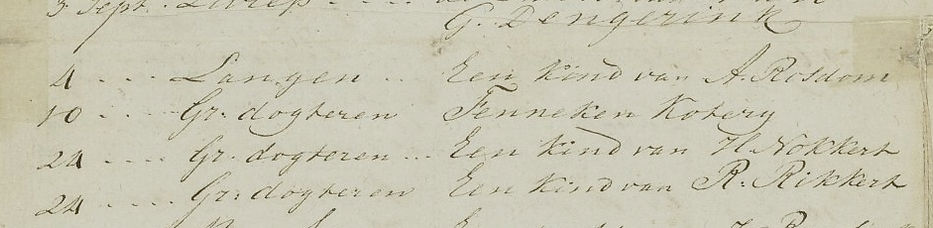 3 Sept.
G. Dengerink
4 .... Langen .. Een kind van A. Rosdom
10 .... Gr: dogteren Fenneken Kotery
24 .... Gr. dogteren ... Een kind van H. Nokkert
24 ..... Gr: dogteren Een kind van R. Rikkert